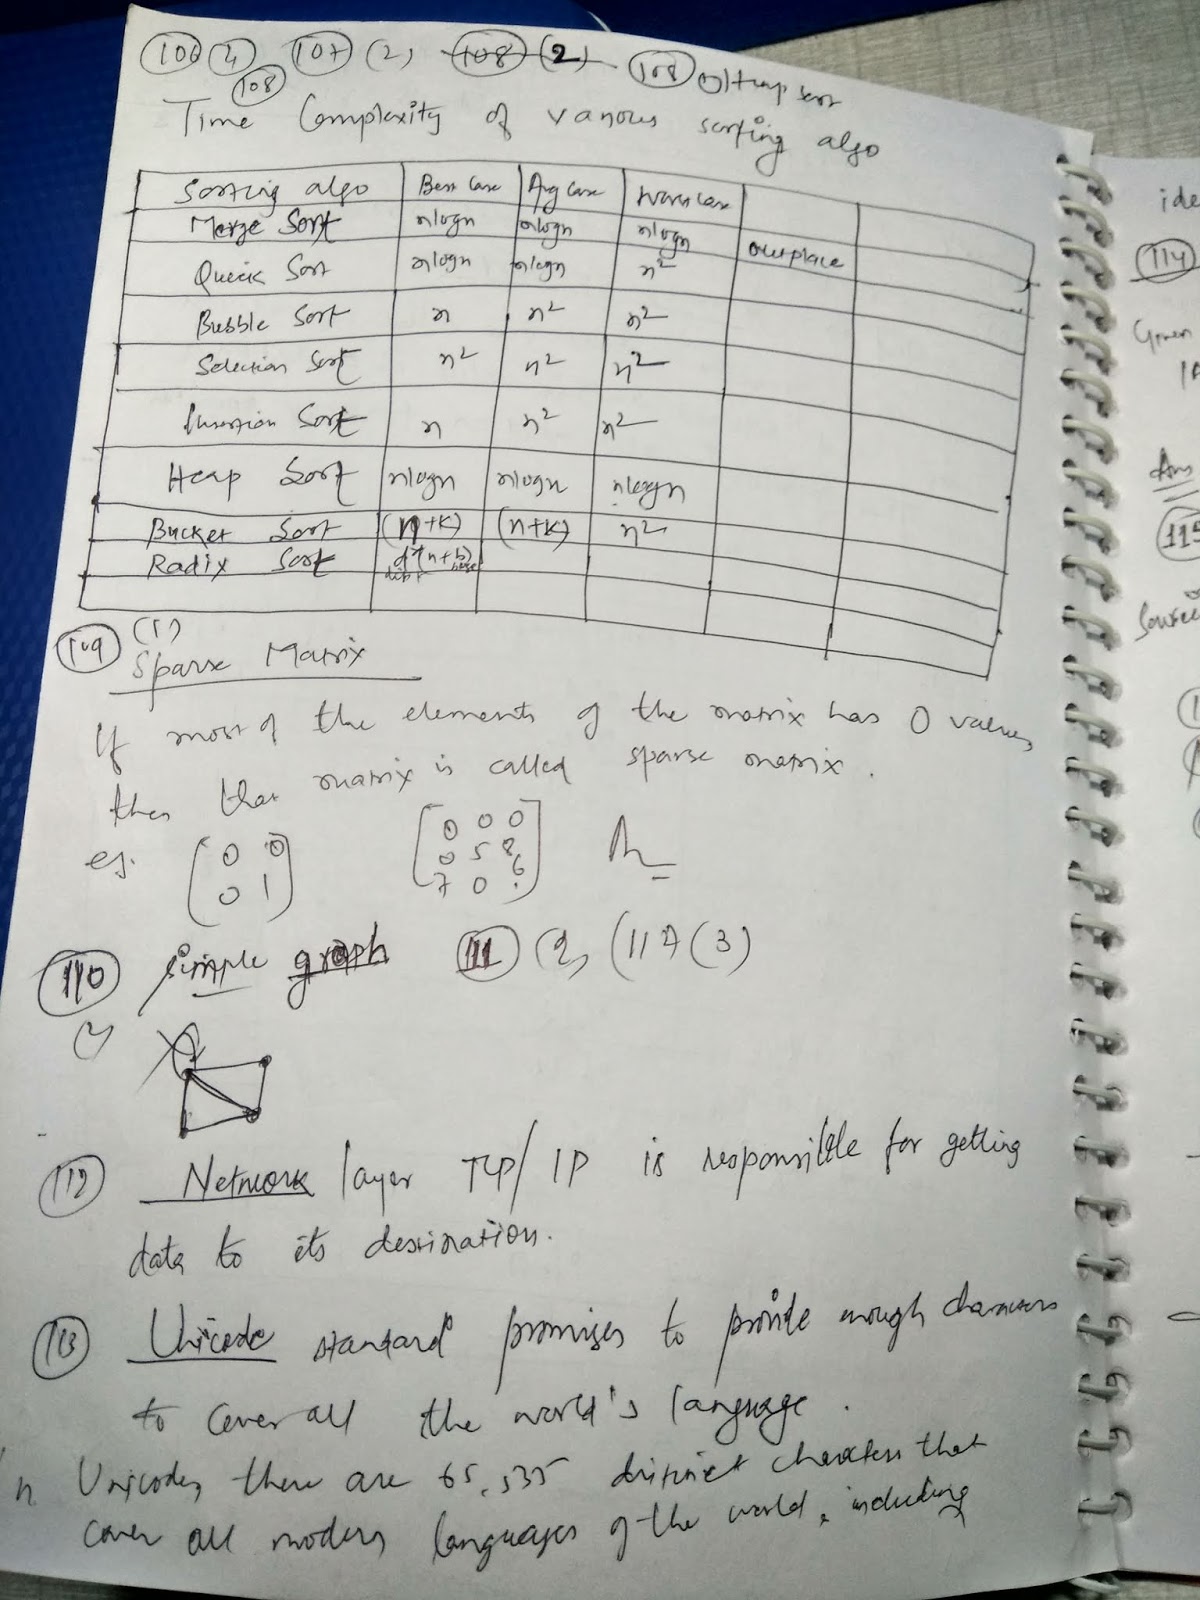 106 (2) 107 (2) 108 (2) 108 Heap sort
108
Time Complexity of various sorting algo
Sorting algo Best Case Avg Case Worst Case
Merge Sort nlogn nlogn nlogn outplace
Quick Sort nlogn nlogn n²
Bubble Sort n n² n²
Selection Sort n² n² n²
Insertion Sort n n² n²
Heap Sort nlogn nlogn nlogn
Bucket Sort (n+k) (n+k) n²
Radix Sort d*(n+b)
base
109 (1)
Sparse Matrix
If most of the elements of the matrix has 0 values,
then that matrix is called sparse matrix.
eg. 0 0 0 0 0
0 1 0 5 8
7 0 6
110 simple graph 111 (2, (117 (3)
112 Network layer TCP/IP is responsible for getting
data to its destination.
113 Unicode standard promises to provide enough characters
to cover all the world's language.
n Unicode, there are 65,535 distinct characters that
cover all modern languages of the world, including
ide
114
Given
Ans
115
Source